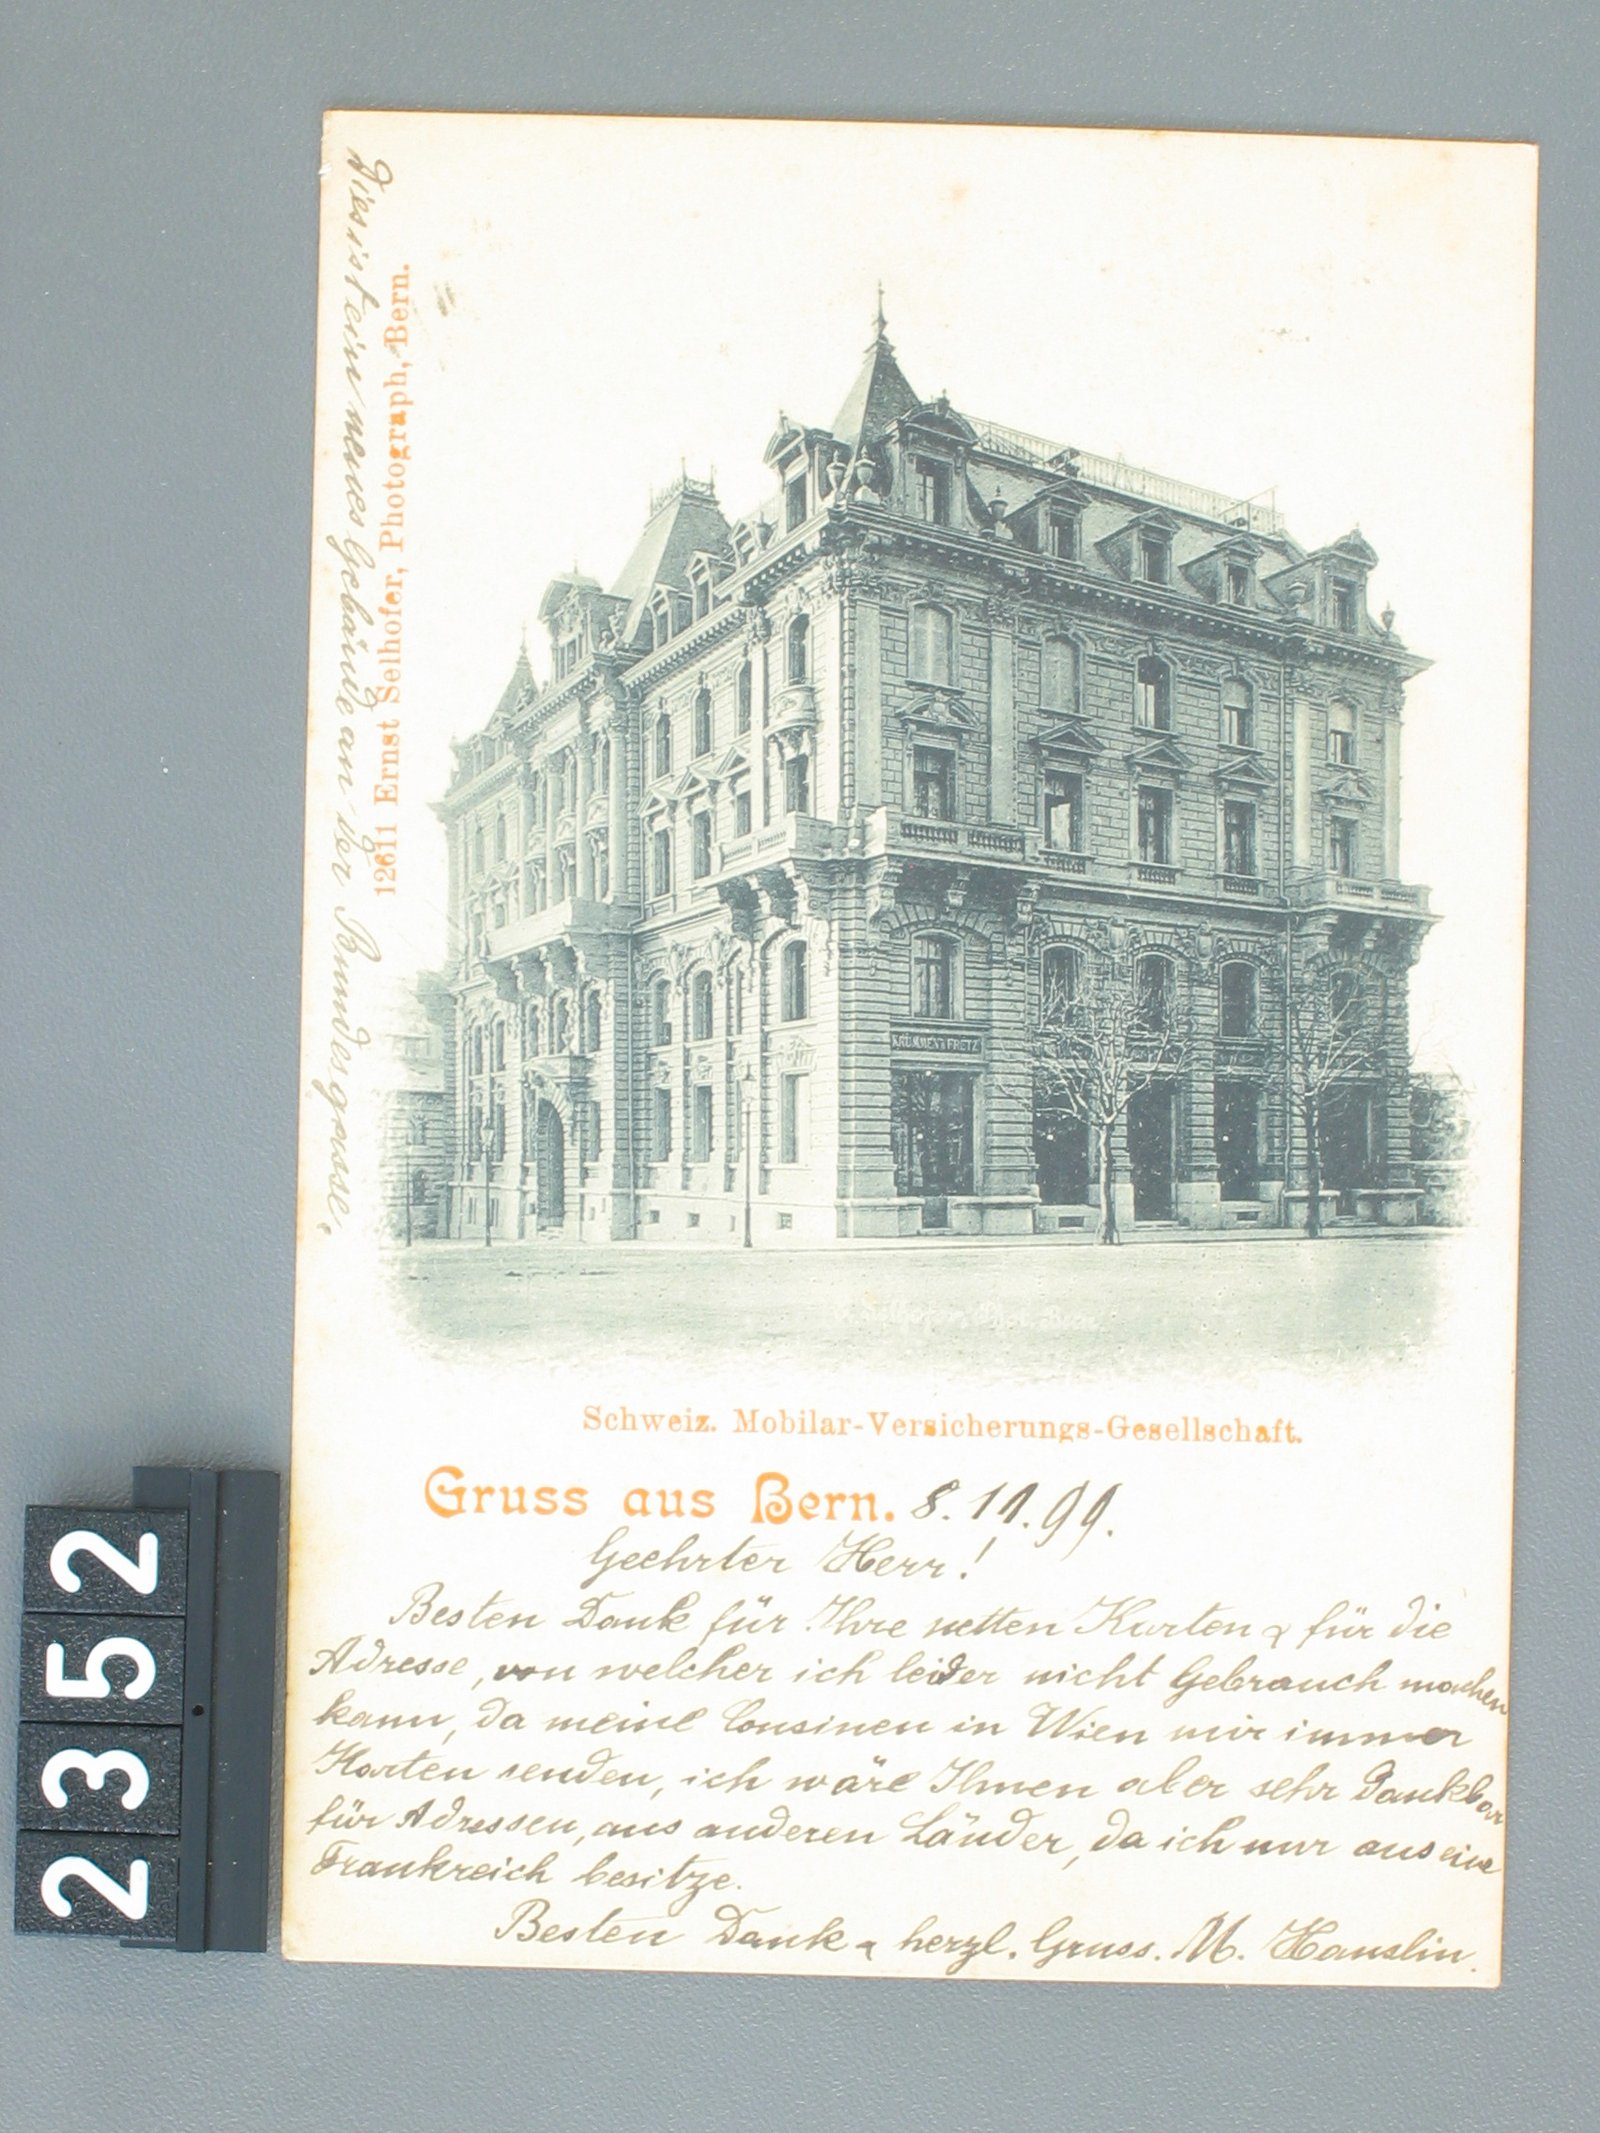 Dies ist ein neues Gebäude an der Bundesgasse.
1261 Ernst Selhofer, Photograph, Bern.
KRUMMEN & FRETZ
Schweiz. Mobilar-Versicherungs-Gesellschaft.
Gruss aus Bern. 8. 11. 99.
Geehrter Herr!
Besten Dank für Ihre netten Karten & für die
Adresse, von welcher ich leider nicht Gebrauch machen
kann, da meine Cousinen in Wien mir immer
Karten senden, ich wäre Ihnen aber sehr dankbar
für Adressen, aus anderen Länder, da ich nur aus eine
Frankreich besitze.
Besten Dank & herzl. Gruss. M. Hauslin.
2352